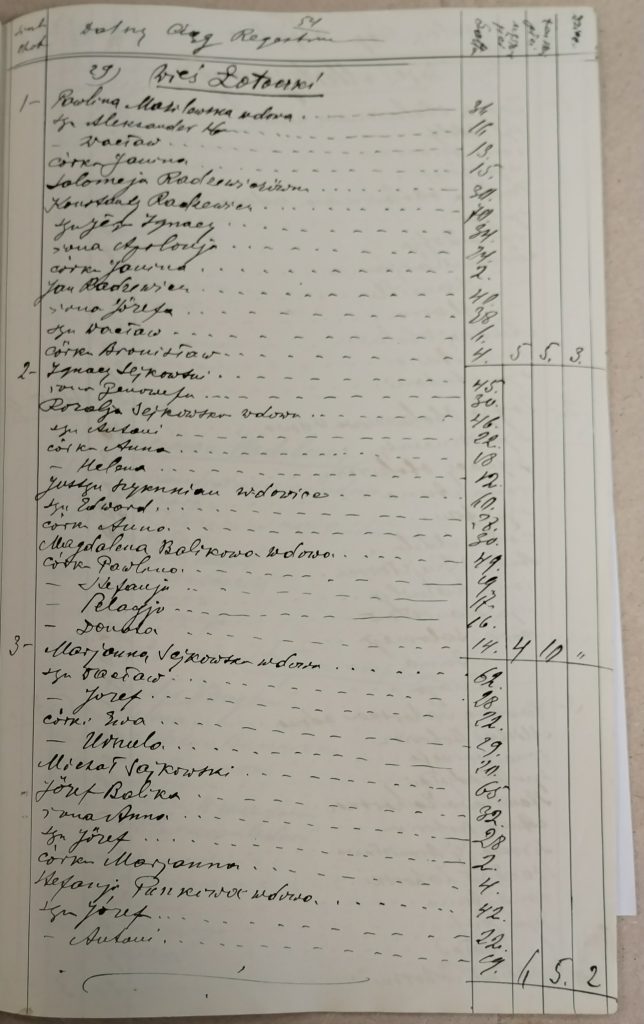 54
Dalszy Ciąg Regestru
29) Wieś Łotoczki
1- Pawlina Masilewska wdowa 31.
syn Aleksander 11.
- Wacław 13.
córka Janina 15.
Salomeja Radzewiczówna 30.
Konstanty Radzewicz 70.
syn Ignacy 34.
żona Apolonja 34.
córka Janina 2.
Jan Radzewicz 40.
żona Józefa 38.
syn Wacław 1.
córka Bronisław 4. 5 5. 3.
2- Ignacy Sejkowski 45.
żona Genowefa 30.
Rozalja Sejkowska wdowa 46.
syn Antoni 22.
córka Anna 18
- Helena 12.
Justyn wdowiec 60.
syn Edward
córka Anna 30.
Magdalena Balikowa wdowa 49.
córka Pawlina 19.
- Stefanja 17.
- Pelagja 16.
- Donata 14. 4 10 "
3- Marjanna Sejkowska wdowa 62.
syn Wacław 28
- Jozef 22.
córki Ewa 29.
- Urszula 20.
Michał Sajkowski 65.
Józef Balika 32.
żona Anna 28
syn Józef 2.
córka Marjanna 4.
Stefanja wdowa 42.
syn Józef 22.
- Antoni 19. 5. 2